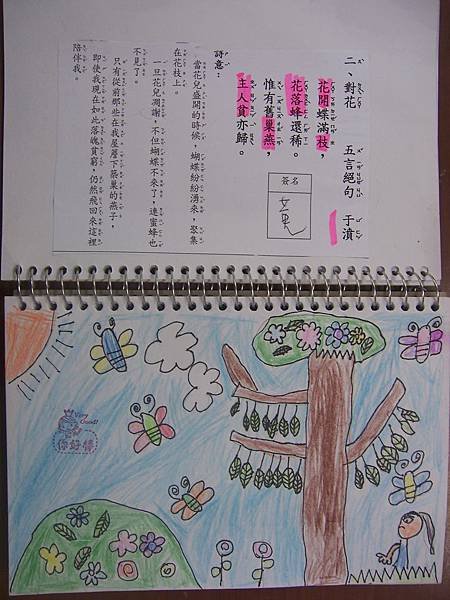 二、對花　五言絕句　于濆
花開蝶滿枝，
花落蜂還稀。
惟有舊巢燕，
主人貧亦歸。
簽名
詩意：
當花兒盛開的時候，蝴蝶紛紛湧來，聚集
在花枝上。
一旦花兒凋謝，不但蝴蝶不來了，連蜜蜂也
不見了。
只有從前那些在我屋簷下築巢的燕子，
即使我現在如此落魄貧窮，仍然飛回來這裡
陪伴我。
Very Good!
你好棒